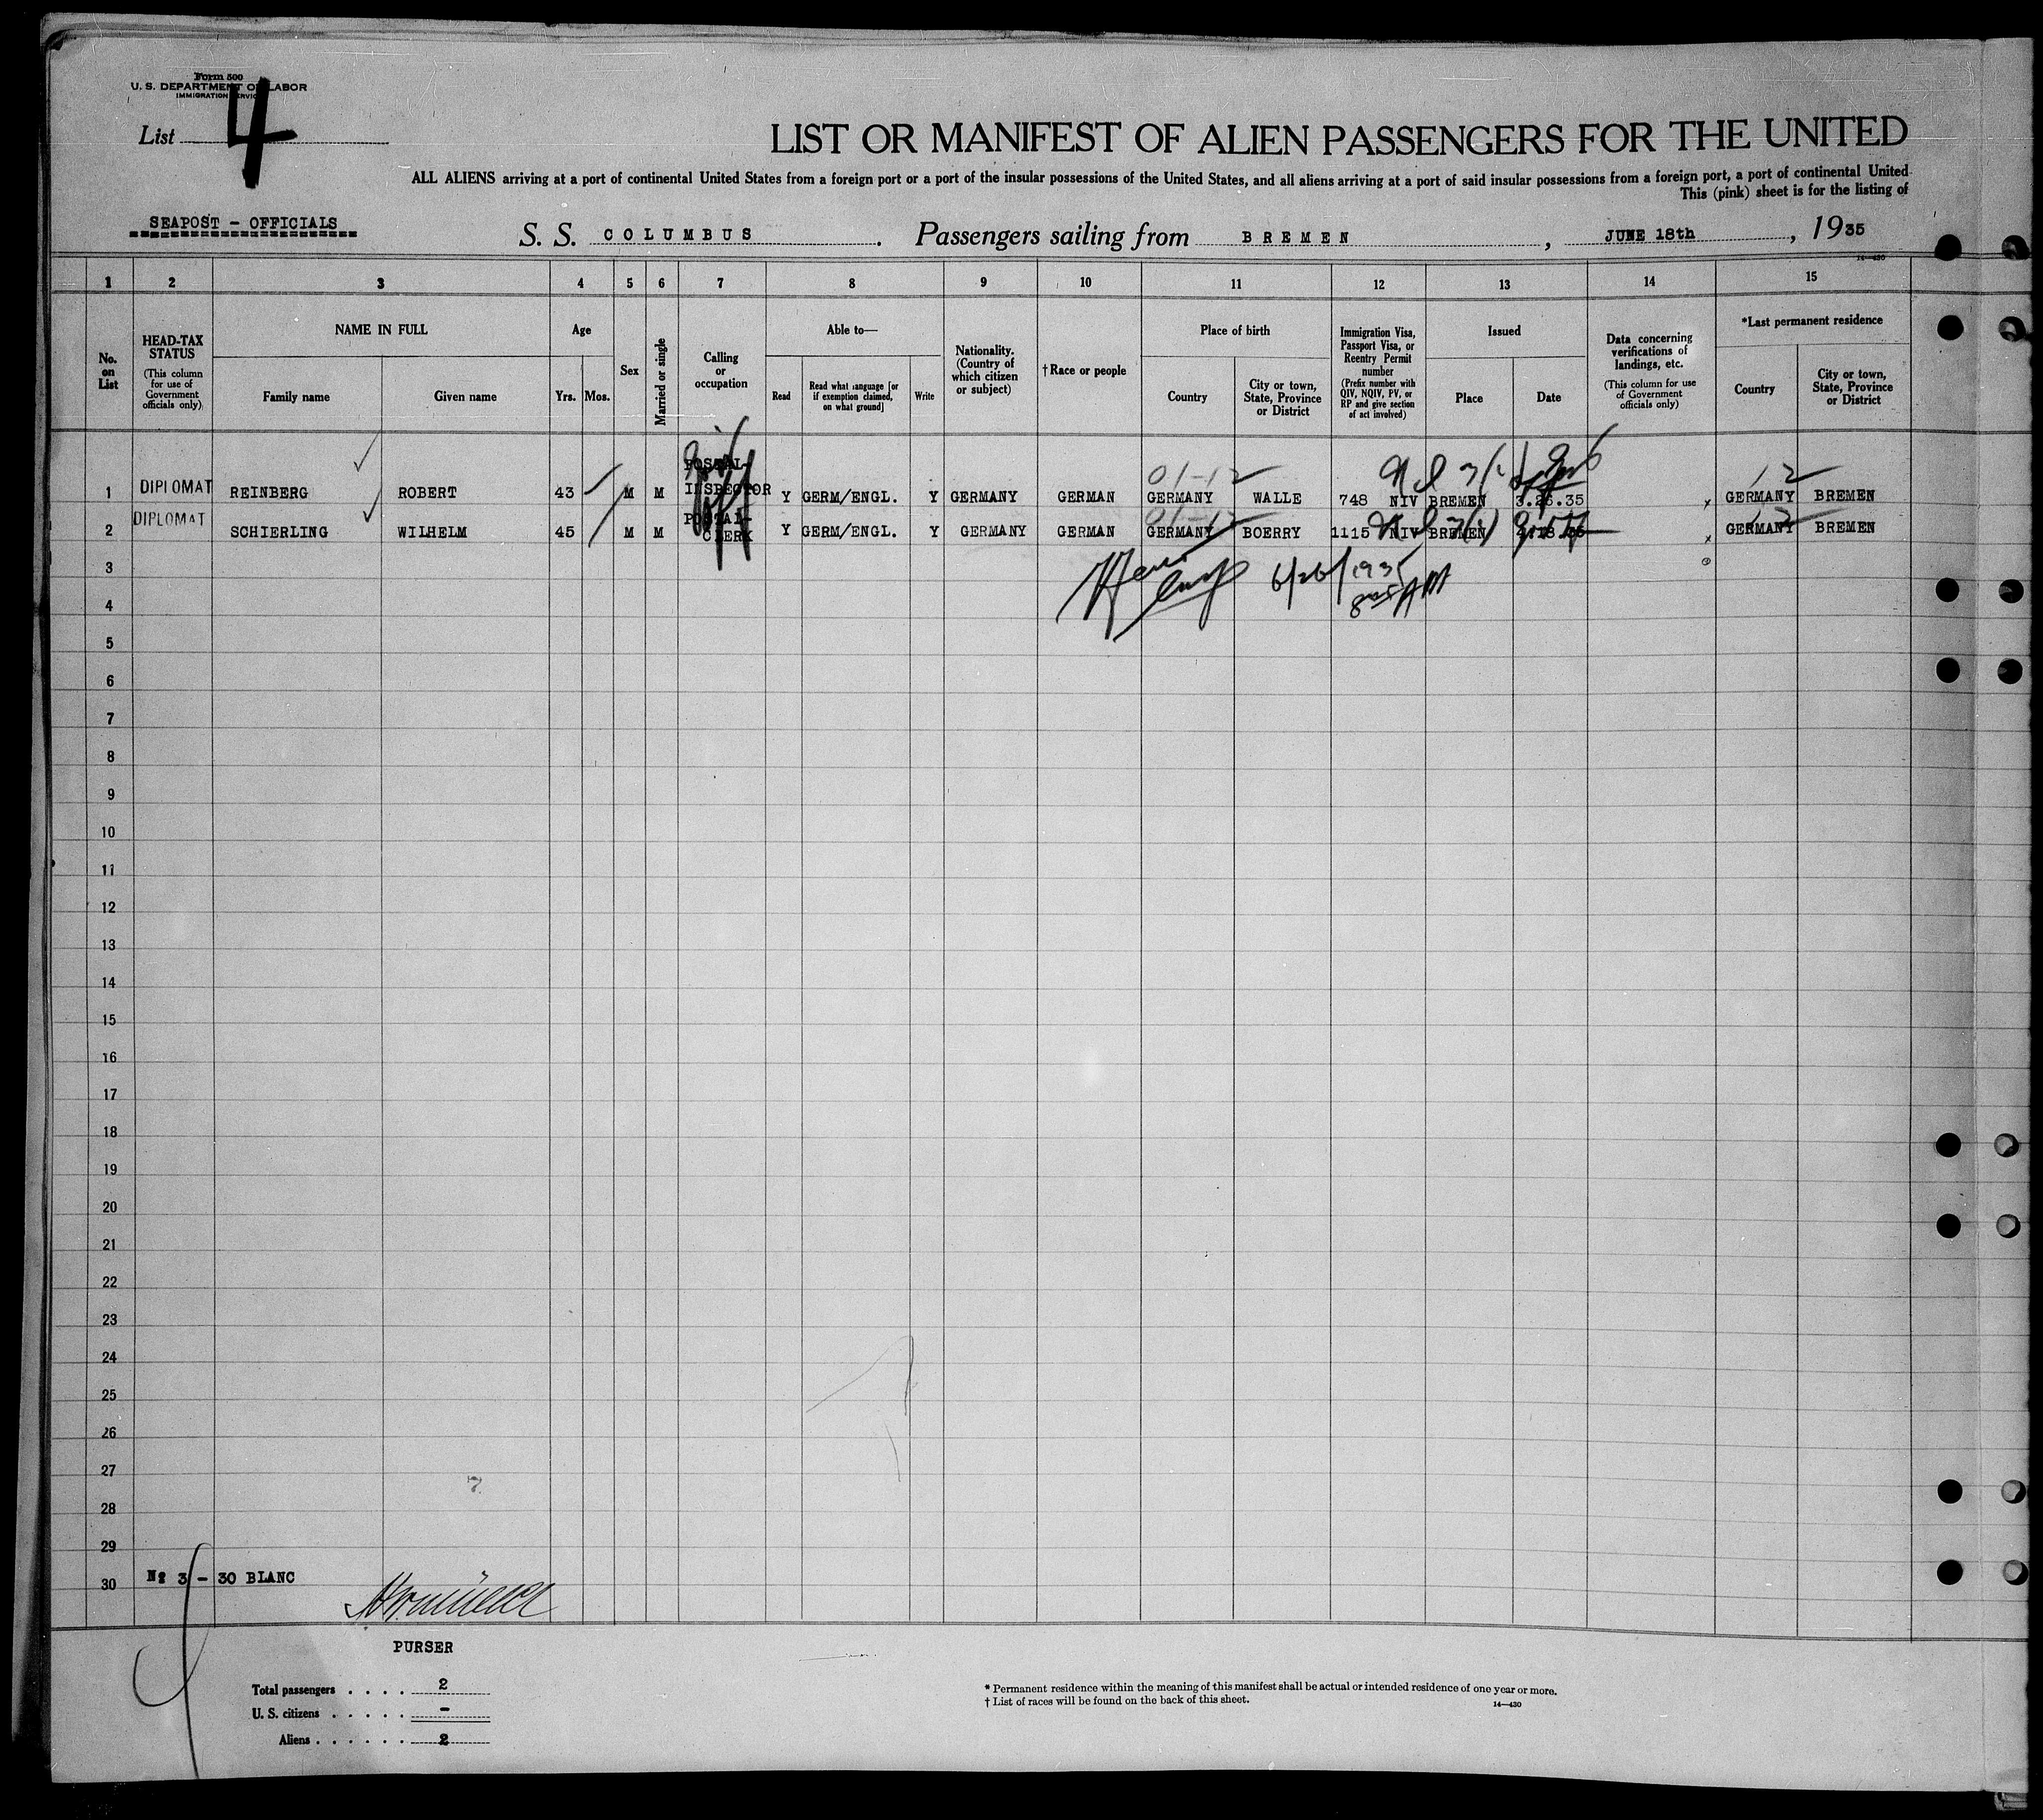 Form 500
U. S. DEPARTMENT OF LABOR
IMMIGRATION SERVICE
List 4
LIST OR MANIFEST OF ALIEN PASSENGERS FOR THE UNITED
ALL ALIENS arriving at a port of continental United States from a foreign port or a port of the insular possessions of the United States, and all aliens arriving at a port of said insular possessions from a foreign port, a port of continental United
This (pink) sheet is for the listing of
SEAPOST - OFFICIALS
S. S. COLUMBUS. Passengers sailing from BREMEN, JUNE 18th, 1935
14-430
1 2 3 4 5 6 7 8 9 10 11 12 13 14 15
No. on List
HEAD-TAX STATUS
(This column for use of Government officials only)
NAME IN FULL
Family name
Given name
Age
Yrs.
Mos.
Sex
Married or single
Calling or occupation
Able to—
Read
Read what language [or if exemption claimed, on what ground]
Write
Nationality. (Country of which citizen or subject)
†Race or people
Place of birth
Country
City or town, State, Province or District
Immigration Visa, Passport Visa, or Reentry Permit number
(Prefix number with QIV, NQIV, PV, or RP and give section of act involved)
Issued
Place
Date
Data concerning verifications of landings, etc.
(This column for use of Government officials only)
*Last permanent residence
Country
City or town, State, Province or District
01-12
12
1 DIPLOMAT REINBERG ROBERT 43 M M POSTAL-INSPECTOR Y GERM/ENGL. Y GERMANY GERMAN GERMANY WALLE 748 NIV BREMEN 3.26.35 x GERMANY BREMEN
01-12
12
2 DIPLOMAT SCHIERLING WILHELM 45 M M POSTAL-CLERK Y GERM/ENGL. Y GERMANY GERMAN GERMANY BOERRY 1115 NIV BREMEN x GERMANY BREMEN
3
6/26/1935
AM
4
5
6
7
8
9
10
11
12
13
14
15
16
17
18
19
20
21
22
23
24
25
26
27
28
29
30 No 3 - 30 BLANC
PURSER
Total passengers . . . . 2
U. S. citizens . . . . . -
Aliens . . . . . . 2
* Permanent residence within the meaning of this manifest shall be actual or intended residence of one year or more.
† List of races will be found on the back of this sheet.
14-430